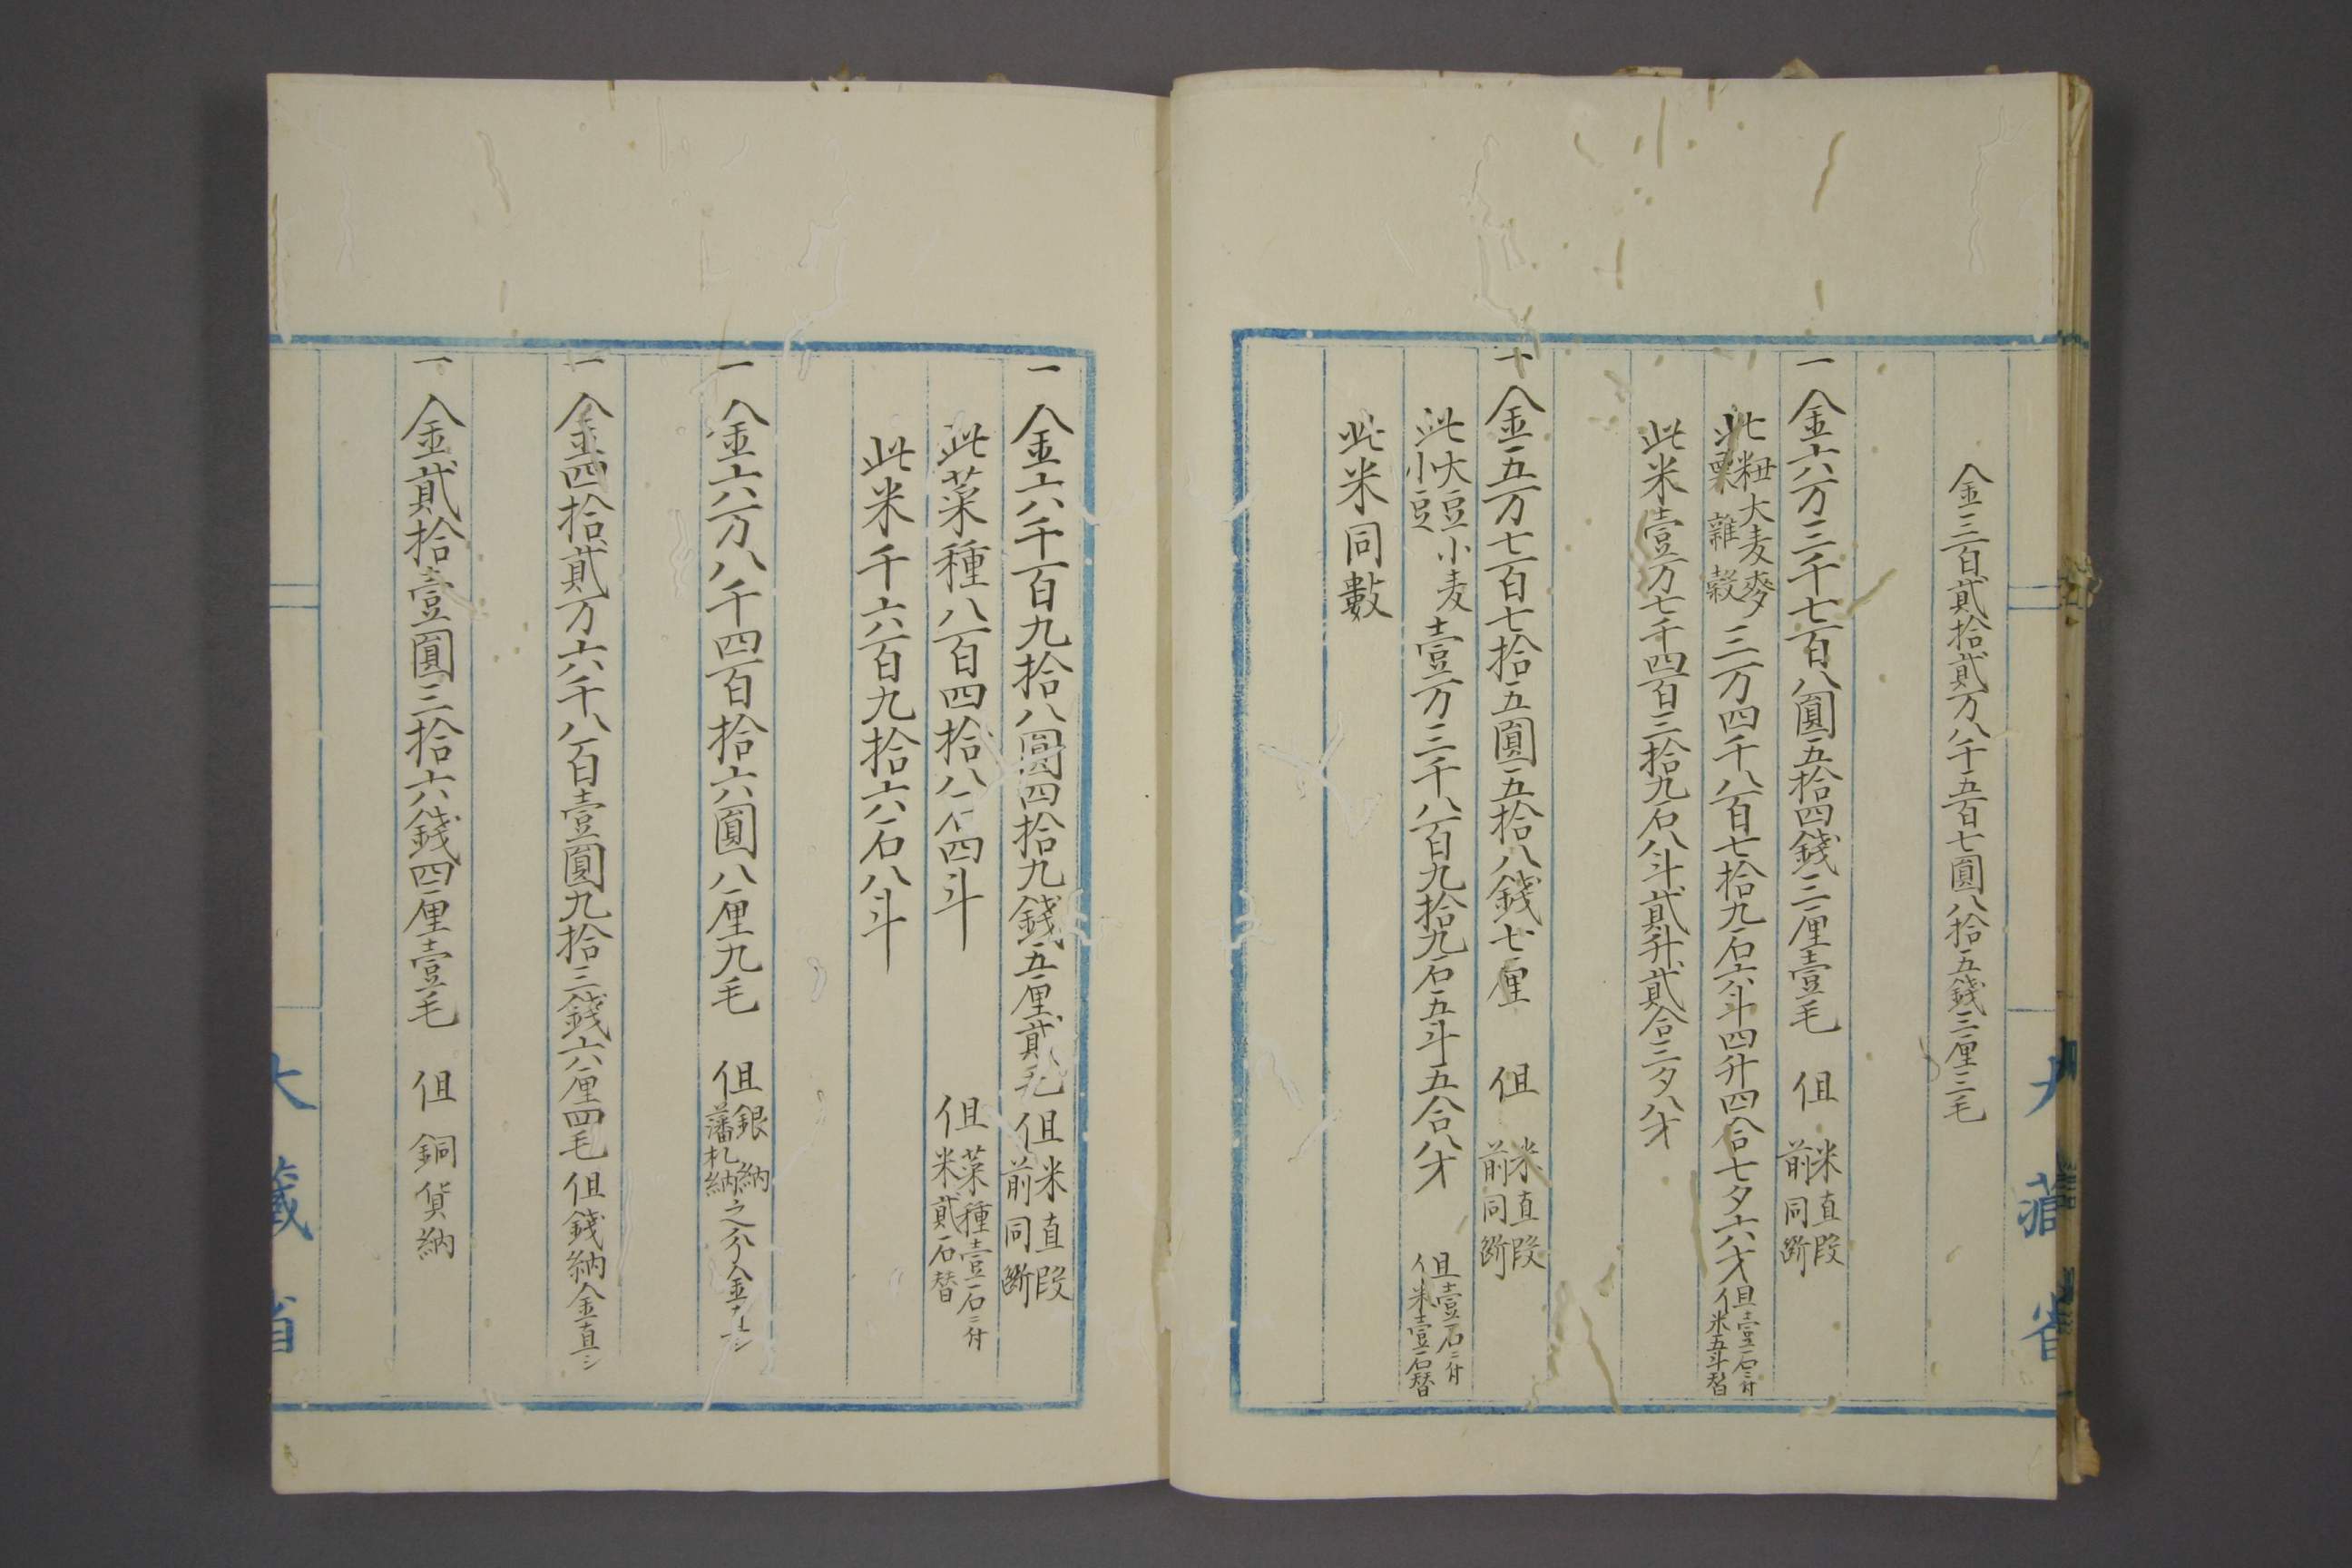 金三百貳拾貳万八千五百七圓八拾五錢三厘三毛
一金六万三千七百八圓五拾四錢三厘壹毛　但米直段前同斷
此籾大麦麥粟雜穀三万四千八百七拾九石六斗四升四合七夕六才但壹石ニ付米五斗替
此米壹万七千四百三拾九石八斗貳升貳合三夕八才
一金五万七百七拾五圓五拾八錢七厘　但米直段前同斷
此大豆小麦小豆壹万三千八百九拾九石五斗五合八才　但壹石ニ付米壹石替
此米同數
大藏省
一金六千百九拾八圓四拾九錢五厘貳毛但米直段前同斷
此菜種八百四拾八石四斗　但菜種壹石ニ付米貳石替
此米千六百九拾六石八斗
一金六万八千四百拾六圓八厘九毛　但銀納藩札納之分金ナヲシ
一金四拾貳万六千八百壹圓九拾三錢六厘四毛但錢納金直シ
一金貳拾壹圓三拾六錢四厘壹毛　但銅貨納
大藏省